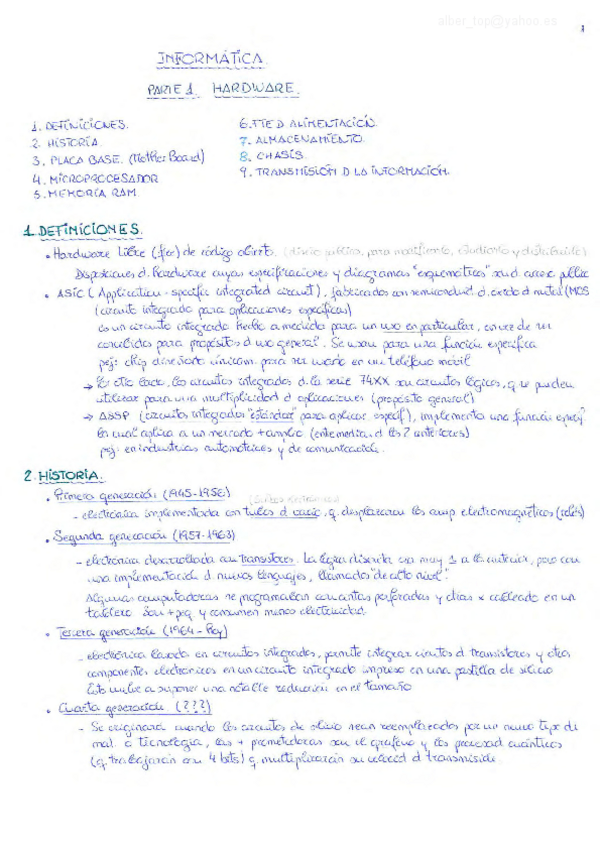 alber_top@yahoo.es
1
INFORMÁTICA.
PARTE 1. HARDWARE.
1. DEFINICIONES.
2. HISTORIA.
3. PLACA BASE. (Mother Board)
4. MICROPROCESADOR
5. MEMORIA RAM.
6. FTE D ALIMENTACIÓN.
7. ALMACENAMIENTO.
8. CHASIS.
9. TRANSMISIÓN D LA INFORMACIÓN.
1. DEFINICIONES.
• Hardware Libre (free) de código abierto. (diseño público, para modificarlo, estudiarlo y distribuirlo)
Disposiciones d. hardware cuyas especificaciones y diagramas "esquemáticos" son d acceso públic
• ASIC (Application-specific integrated circuit), fabricados con semiconduct d. óxido d metal (MOS
(circuito integrado para aplicaciones específicas)
es un circuito integrado hecho a medida para un uso en particular, en vez de ser
concebidos para propósitos d uso general. Se usan para una función específica
pej: chip diseñado únicam. para ser usado en un teléfono móvil
→ Es otro lado, los circuitos integrados d. la serie 74XX son circuitos lógicos, q se pueden
utilizar para una multiplicidad d aplicaciones (propósito general)
→ ASSP (circuitos integrados "estándar" para aplicac. específ), implementa una función específ.
la cual aplica a un mercado + amplio (entemedias d los 2 anteriores)
pej: en industrias automotrices y de comunicación.
2. HISTORIA.
• Primera generación (1945-1956)
- electrónica implementada con tubos d vacío, q. desplazaron los comp electromagnéticos (relés)
• Segunda generación (1957-1963)
- electrónica desarrollada con transistores. La lógica discreta era muy = a la anterior, pero con
una implementación d. nuevos lenguajes, llamados "de alto nivel".
Algunas computadoras se programaban con cintas perforadas y otras x cableado en un
tablero. Son + peq. y consumen menos electricidad.
• Tercera generación (1964-Hoy)
- electrónica basada en circuitos integrados, permite integrar cientos d transistores y otros
componentes electrónicos en un circuito integrado impreso en una pastilla de silicio
Esto vuelve a suponer una notable reducción en el tamaño
• Cuarta generación (???)
- Se originará cuando los circuitos de silicio sean reemplazados por un nuevo tipo de
mat. o tecnología, las + prometedoras son el grafeno y los procesad cuánticos
(q trabajarán con 4 bits) q multiplicarán su velocid d transmisión.